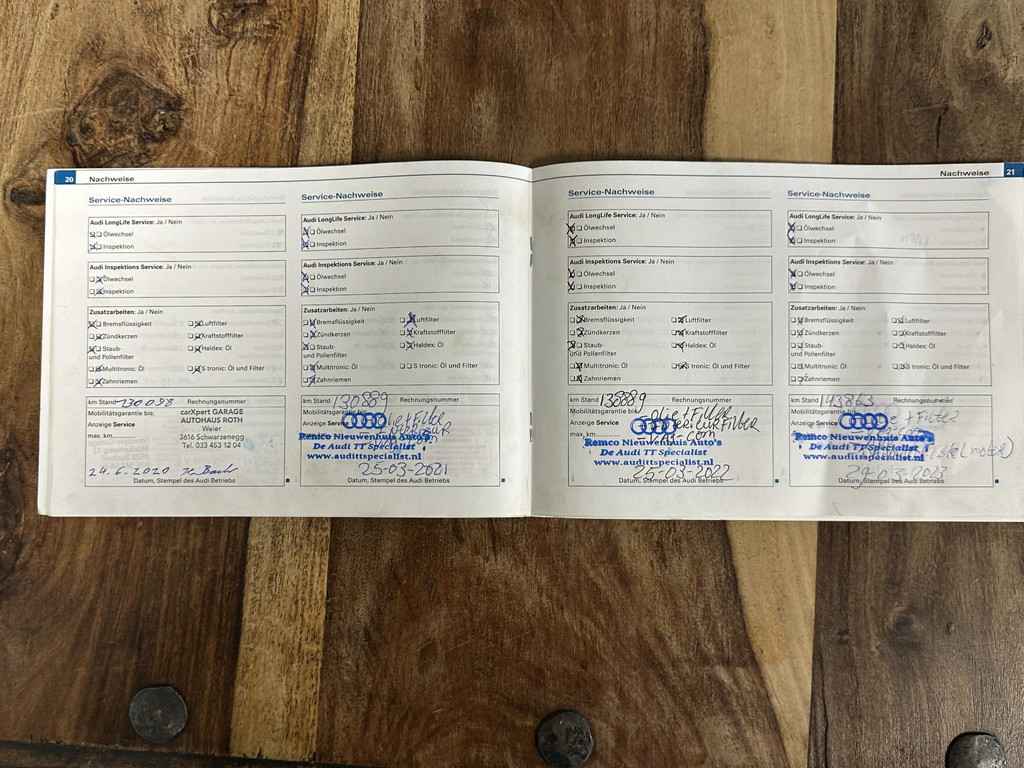 20 Nachweise
Service-Nachweise
Audi LongLife Service: Ja / Nein
Ölwechsel
Inspektion
Audi Inspektions Service: Ja / Nein
Ölwechsel
Inspektion
Zusatzarbeiten: Ja / Nein
Bremsflüssigkeit Luftfilter
Zündkerzen Kraftstofffilter
Staub- Haldex: Öl
und Pollenfilter
Multitronic: Öl S tronic: Öl und Filter
Zahnriemen
km Stand 130098 Rechnungsnummer
Mobilitätsgarantie bis,
Anzeige Service
max. km
carXpert GARAGE
AUTOHAUS ROTH
Weier
3616 Schwarzenegg
Tel. 033 453 12 04
24.6.2020
Datum, Stempel des Audi Betriebs
Service-Nachweise
Audi LongLife Service: Ja / Nein
Ölwechsel
Inspektion
Audi Inspektions Service: Ja / Nein
Ölwechsel
Inspektion
Zusatzarbeiten: Ja / Nein
Bremsflüssigkeit Luftfilter
Zündkerzen Kraftstofffilter
Staub- Haldex: Öl
und Pollenfilter
Multitronic: Öl S tronic: Öl und Filter
Zahnriemen
km Stand 130889 Rechnungsnummer
Mobilitätsgarantie bis,
Anzeige Service
Remco Nieuwenhuis Auto's
De Audi TT Specialist
www.audittspecialist.nl
25-03-2021
Datum, Stempel des Audi Betriebs
Nachweise 21
Service-Nachweise
Audi LongLife Service: Ja / Nein
Ölwechsel
Inspektion
Audi Inspektions Service: Ja / Nein
Ölwechsel
Inspektion
Zusatzarbeiten: Ja / Nein
Bremsflüssigkeit Luftfilter
Zündkerzen Kraftstofffilter
Staub- Haldex: Öl
und Pollenfilter
Multitronic: Öl S tronic: Öl und Filter
Zahnriemen
km Stand Rechnungsnummer
Mobilitätsgarantie bis,
Anzeige Service
max. km
olie + Filter
Remco Nieuwenhuis Auto's
De Audi TT Specialist
www.audittspecialist.nl
25-03-2022
Datum, Stempel des Audi Betriebs
Service-Nachweise
Audi LongLife Service: Ja / Nein
Ölwechsel
Inspektion
Audi Inspektions Service: Ja / Nein
Ölwechsel
Inspektion
Zusatzarbeiten: Ja / Nein
Bremsflüssigkeit Luftfilter
Zündkerzen Kraftstofffilter
Staub- Haldex: Öl
und Pollenfilter
Multitronic: Öl S tronic: Öl und Filter
Zahnriemen
km Stand 143863 Rechnungsnummer
Mobilitätsgarantie bis,
Anzeige Service
max. km
+ Filter
Remco Nieuwenhuis Auto's
De Audi TT Specialist
(motor)
www.audittspecialist.nl
Datum, Stempel des Audi Betriebs